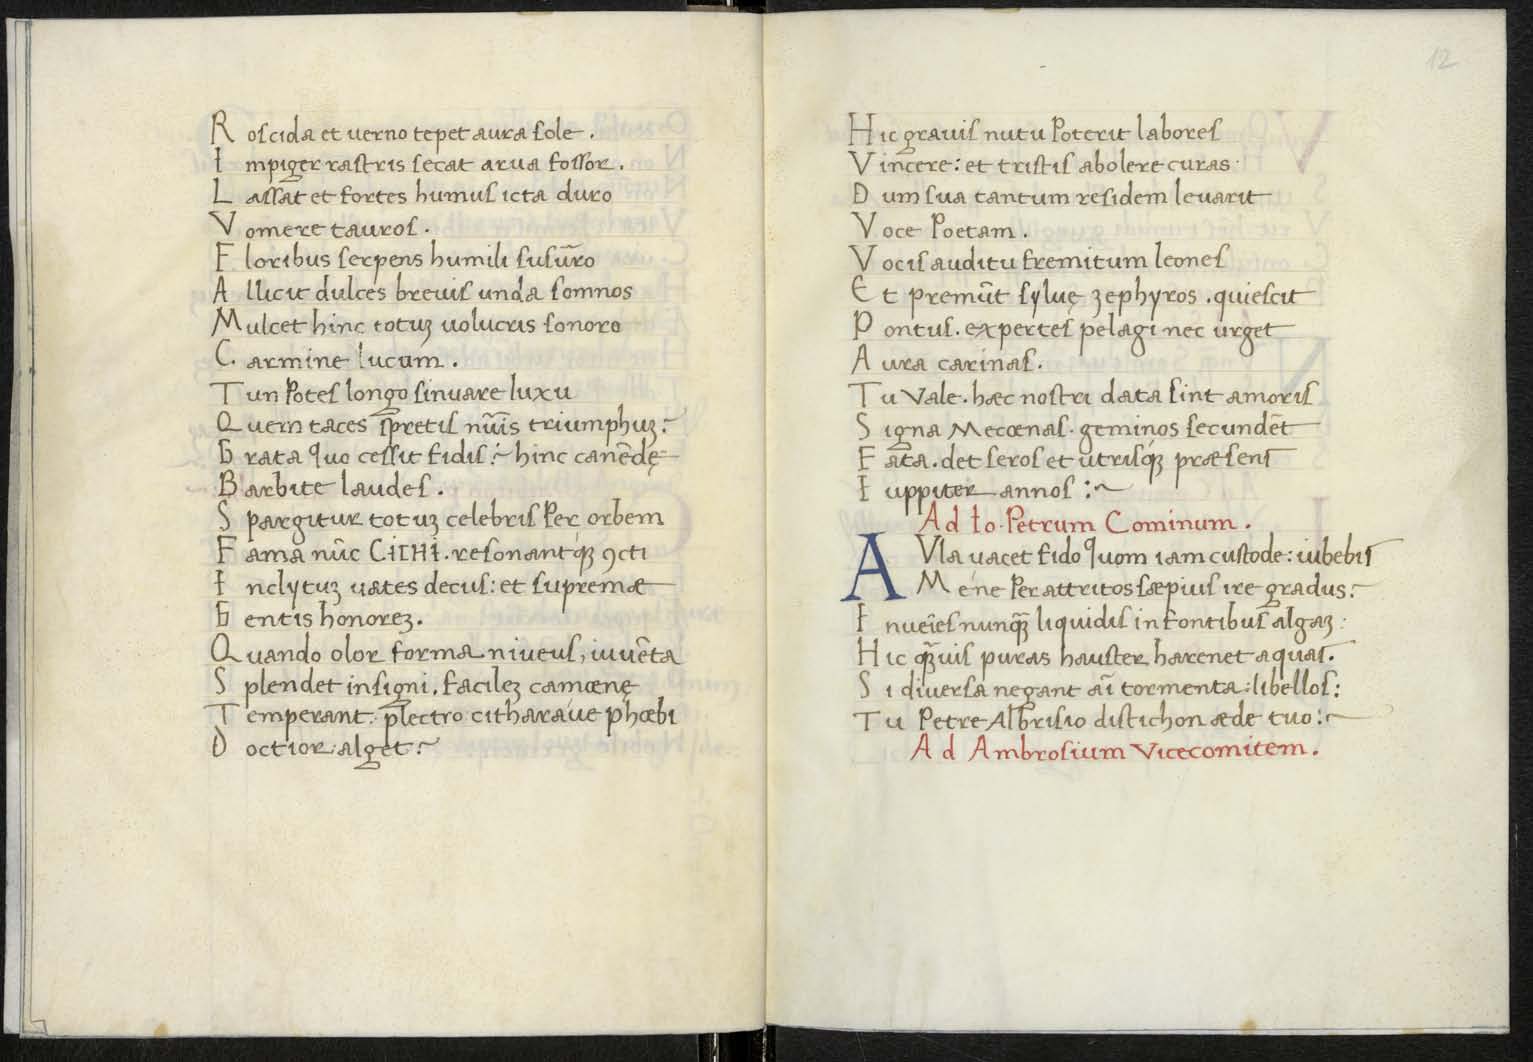 R oscida et uerno tepet aura sole .
I mpiger rastris secat arua fossor .
L assat et fortes humus icta duro
V omere tauros .
F loribus serpens humili susūro
A llicit dulces breuis unda somnos
M ulcet hinc totuʒ uolucris sonoro
C armine lucum .
T un potes longo sinuare luxu
Q uem taces spretis triumphuʒ :~
G rata quo cessit fidis :~ hinc canēdę
B arbite laudes .
S pargitur totuʒ celebris per orbem
F ama nūc CICHI . resonantqʒ ꝯcti
I nclytuʒ uates decus : et supremæ
G entis honoreʒ .
Q uando olor forma niueus , iuuēta
S plendet insigni . facileʒ camœnę
T emperant . plectro citharaue phœbi
D octior alget :~
12
H ic grauis nutu poterit labores
V incere : et tristis abolere curas .
D um sua tantum residem leuarit
V oce Poetam .
V ocis auditu fremitum leones
E t premūt syluę zephyros . quiescit
P ontus . expertes pelagi nec urget
A ura carinas .
T u Vale . hæc nostri data sint amoris
S igna Mecœnas . geminos secundēt
F ata . det seros et utrisqʒ præsens
I uppiter annos :~
Ad Io . Petrum Cominum .
A Vla uacet fido quom iam custode : iubebis
M ene per attritos sæpius ire gradus :~
I nueīes nunqʒ liquidis in fontibus algaʒ :
H ic qʒuis puras hauster harenet aquas .
S i diuersa negant aī tormenta : libellos :
T u Petre Albrisio distichon æde tuo :~
Ad Ambrosium Vicecomitem .